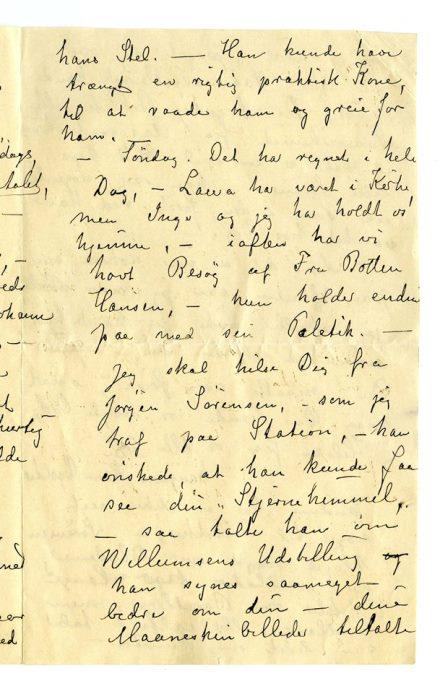 hans Stel. — Han kunde have
trængt en rigtig praktisk Kone,
til at raade ham og greie for
ham.
— Söndag. Det har regnet i hele
Dag, — Laura har været i Kirke,
men Inga og jeg har holdt os
hjemme, — iaften har vi
havt Besög af Fru Botten
Hansen, — hun holder endnu
paa med sin Poletik. —
Jeg skal hilse Dig fra
Jörgen Sörensen, — som jeg
traf paa Station, — han
önskede, at han kunde faa
see din „Stjernehimmel„.
— saa talte han om
Willumsens Udstilling og
han synes saameget
bedre om din — dine
Maaneskinbilleder tiltalte
dags,
talet,